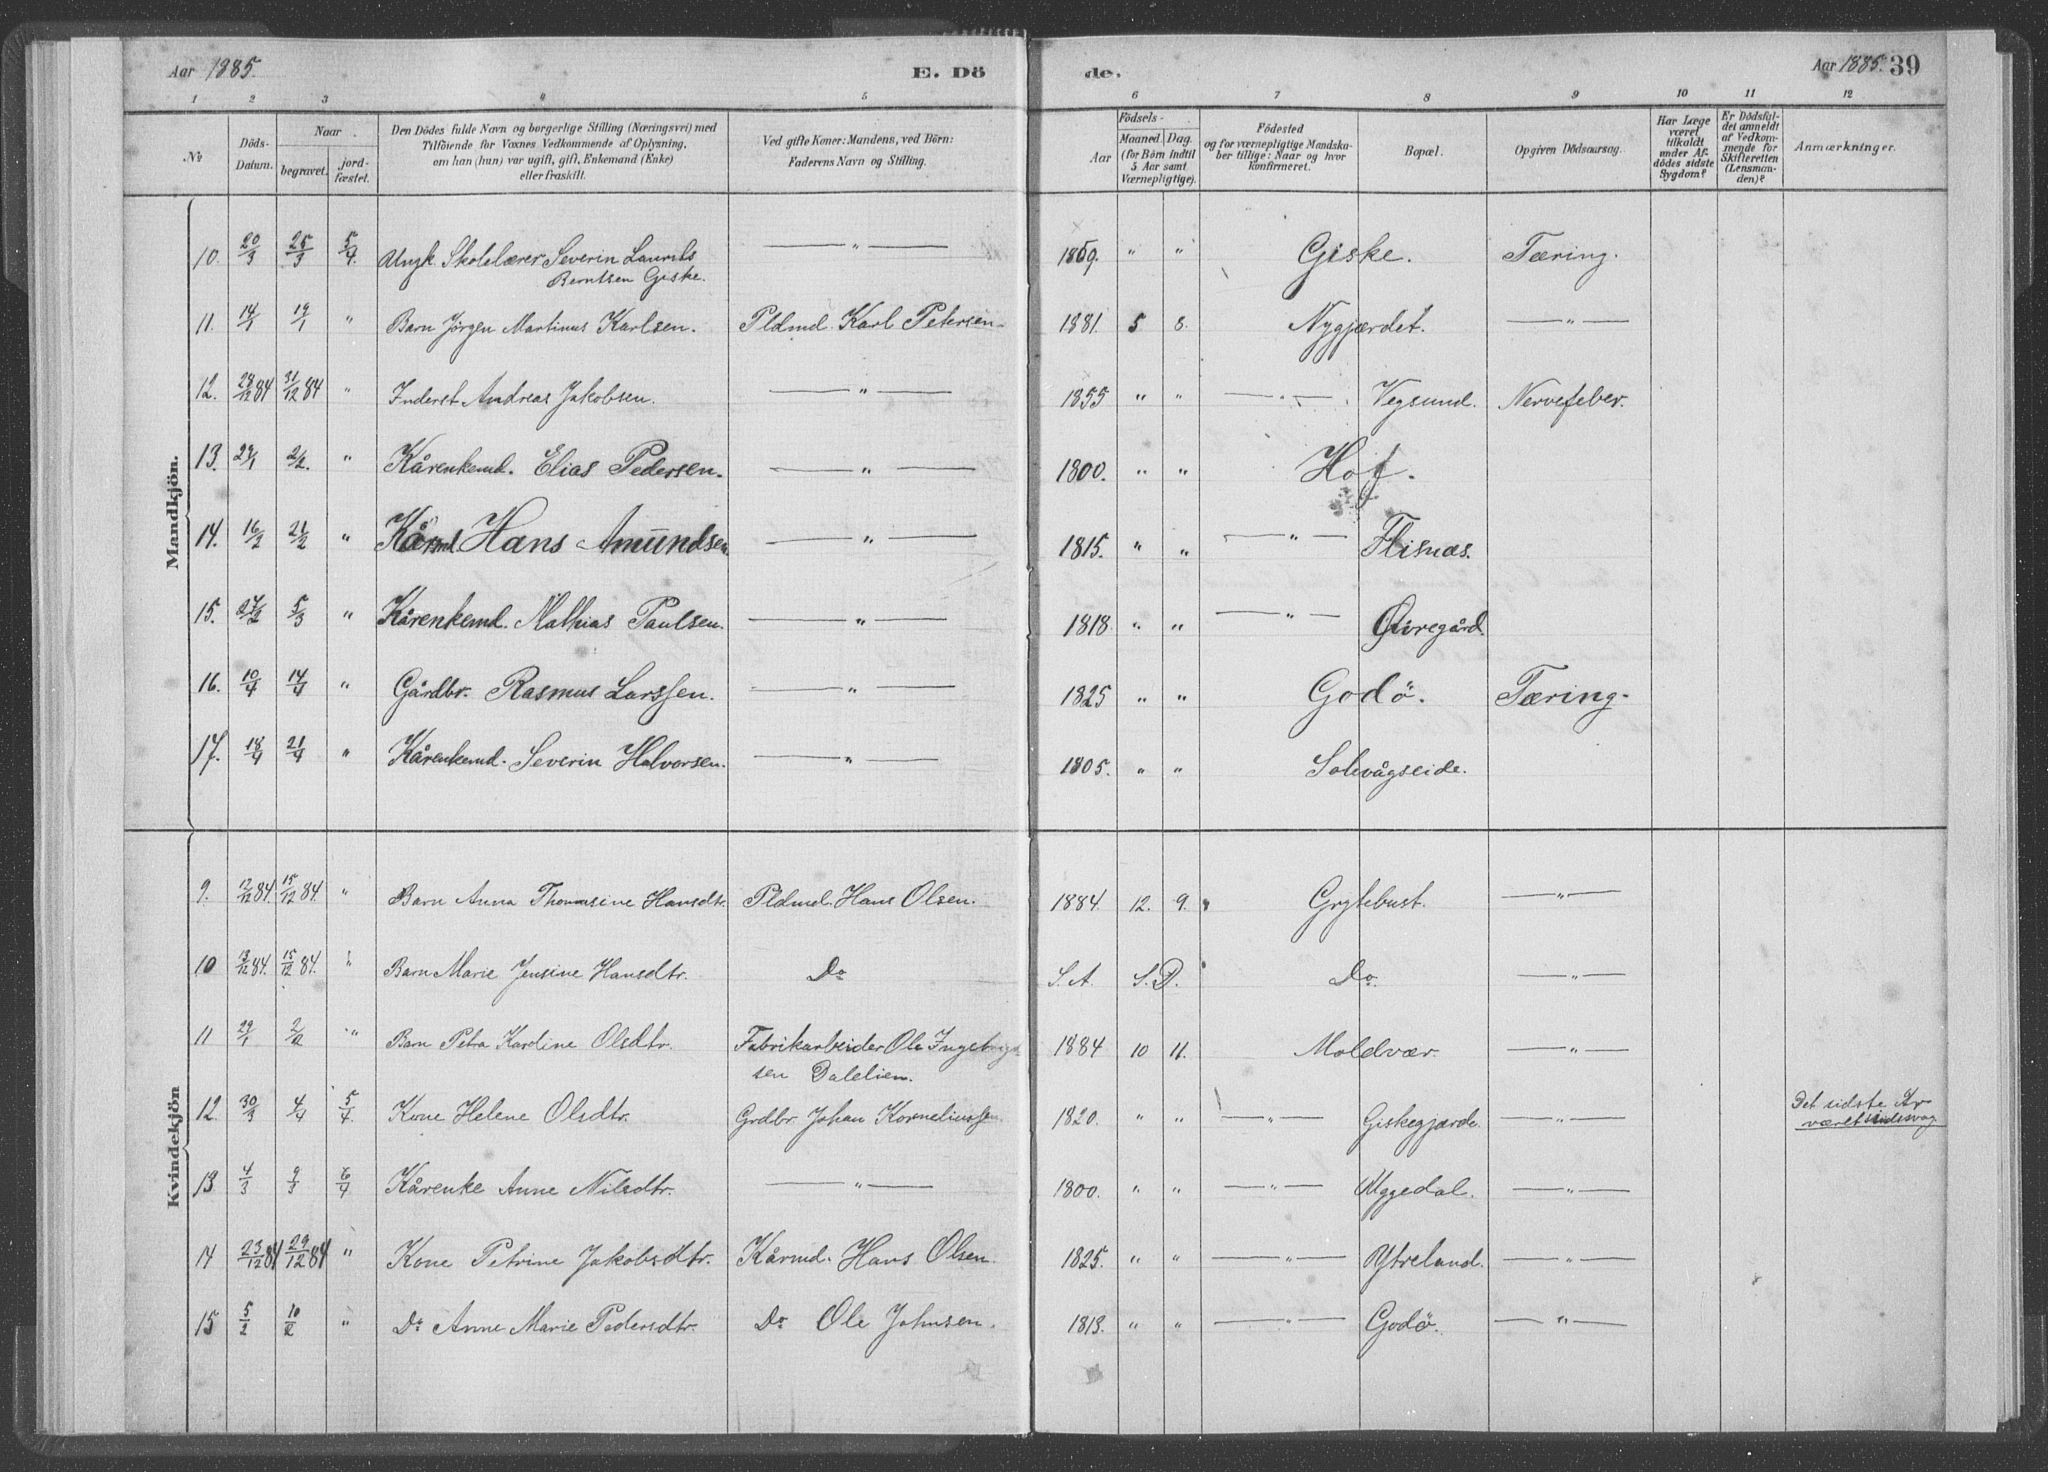 Aar 1885. E. Dö de. Aar 1885. 39
1 2 3 4 5 6 7 8 9 10 11 12
No Döds-Datum. Naar begravet. jordfæstet. Den Dödes fulde Navn og borgerlige Stilling (Næringsvei) med Tilföiende for Voxnes Vedkommende af Oplysning, om han (hun) var ugift, gift, Enkemand (Enke) eller fraskilt. Ved gifte Koner: Mandens, ved Börn: Faderens Navn og Stilling. Födsels- Aar Maaned Dag. (for Börn indtil 5 Aar samt Værnepligtige). Födested og for værnepligtige Mandskaber tillige: Naar og hvor konfirmeret. Bopæl. Opgiven Dödsaarsag. Har Læge været tilkaldt under Afdödes sidste Sygdom? Er Dödsfaldet anmeldt af Vedkommende for Skifteretten (Lensmanden)? Anmærkninger.
Mandkjön.
10. 20/3 25/3 5/4. Ungk. Skolelærer Severin Laurits — " — 1859. " " Giske. Tæring.
Berntsen Giske.
11. 14/1 19/1 " Barn Jørgen Martinus Karlsen. Pldmd. Karl Petersen. 1881. 5 8. Nygjærdet. — " —
12. 28/12 84 31/12 84 " Inderst Andreas Jakobsen. — " — 1855 " " — " — Vegsund. Nervefeber.
13. 29/1 2/2. " Kårenkemd. Elias Pedersen. — " — 1800. " " Hof.
14. 16/2 21/2 " Kårmd. Hans Amundsen — " — 1815. " " — " — Flisnæs.
15. 27/2 5/3 " Kårenkemd. Mathias Paulsen. — " — 1818. " " — " — Øvregård.
16. 10/4 14/4 " Gårdbr. Rasmus Larssen. — " — 1825 " " Godø. Tæring.
17. 18/4 21/4 " Kårenkemd. Severin Halvorsen. — " — 1805. " " Solevågseide.
Kvindekjön
9. 12/12 84. 15/12 84. " Barn Anna Thomasine Hansdtr. Pldmd. Hans Olsen. 1884. 12. 9. Grytebust. — " —
10 13/12 84. 15/12 84. " Barn Marie Jensine Hansdtr. Do S.A. S.D. Do. — " —
11 29/1 2/2 " Barn Petra Karoline Olsdtr. Fabrikarbeider Ole Ingebrigt- 1884 10 11. Moldvær. — " —
sen Dalelien.
12. 30/3 4/4 5/4. Kone Helene Olsdtr. Grdbr. Johan Korneliussen 1820. " " — " — Giskegjærde. — " — Det sidste År
været sindssvag
13 4/3 9/3 6/4 Kårenke Anne Nilsdtr. — " — 1800. " " — " — Uggedal. — " —
14 23/12 84 29/12 84 " Kone Petrine Jakobsdtr. Kårmd. Hans Olsen. 1825. " " — " — Ytreland. — " —
15 5/2 10/2 " Do Anne Marie Pedersdtr. Do Ole Johnsen. 1813. " " — " — Godø. — " —